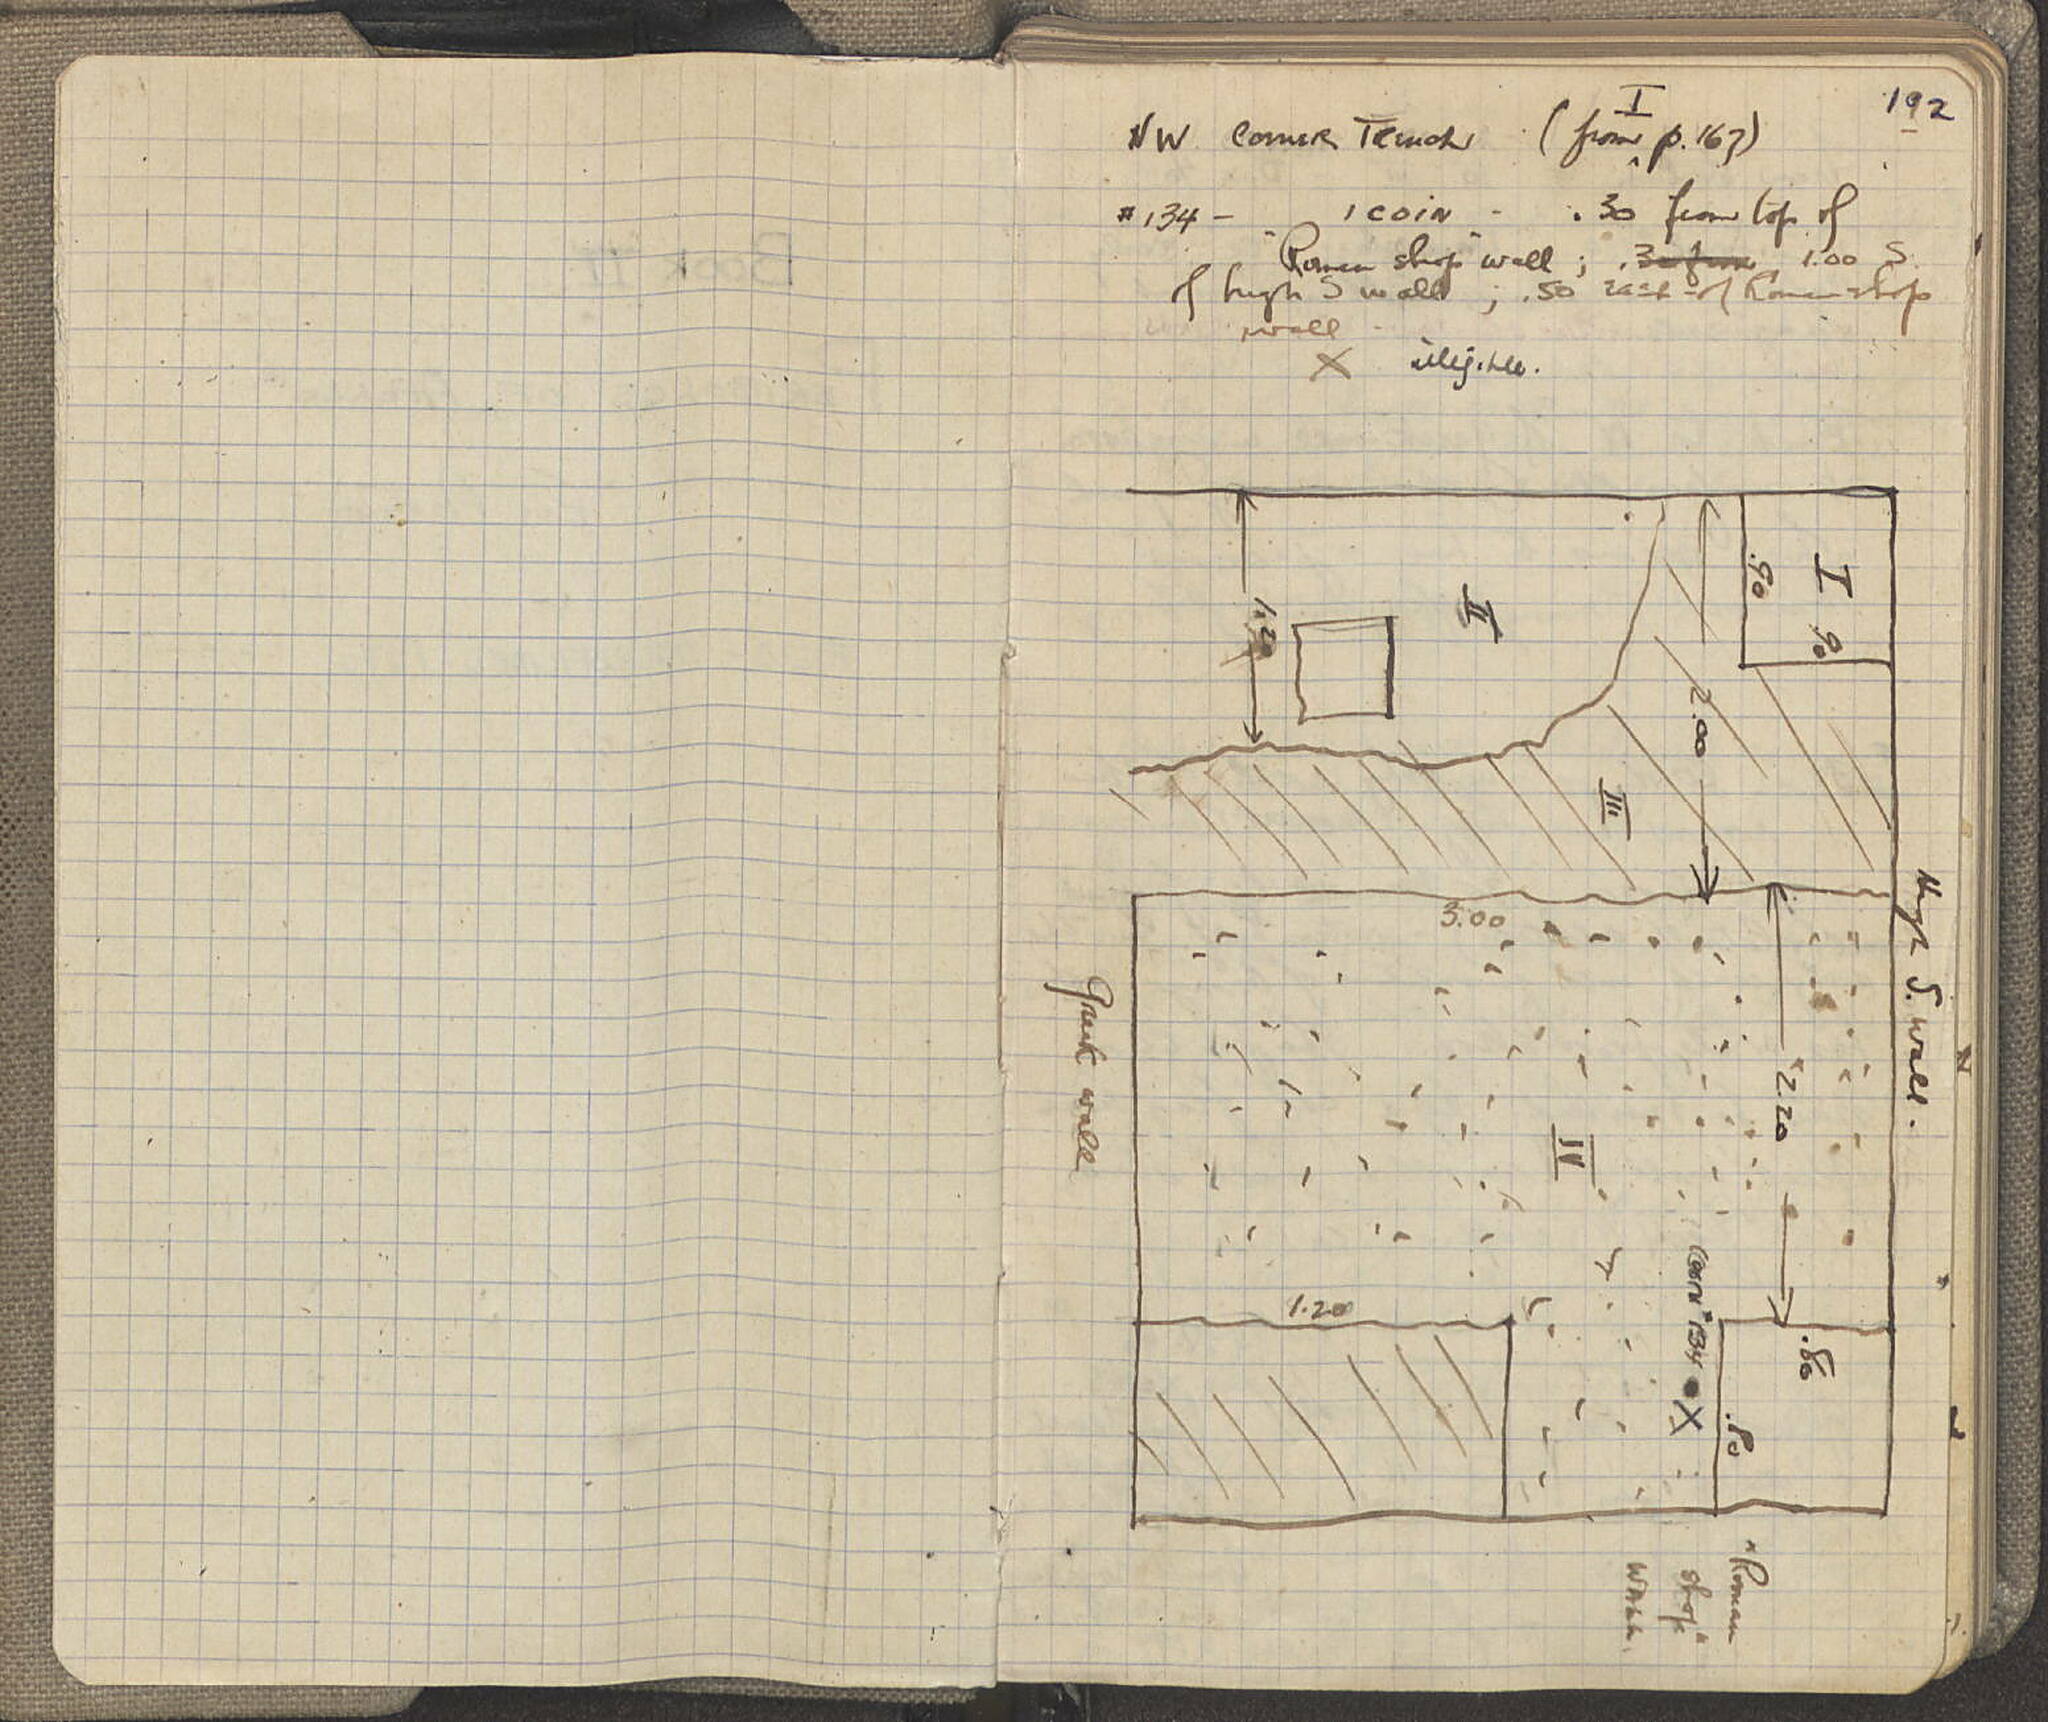 192
NW Corner Trench (from I p. 167)
#134 - 1 COIN - .30 from top of
"Roman shop" wall ; .30 from 1.00 S.
of high S wall ; .50 east of Roman shop
wall -
X illegible.
I
.90
.90
II
1.20
2.00
III
High S. wall.
3.00
2.20
Greek wall
IV
COIN #134 X
1.20
.80
.80
"Roman
shop"
WALL.
N